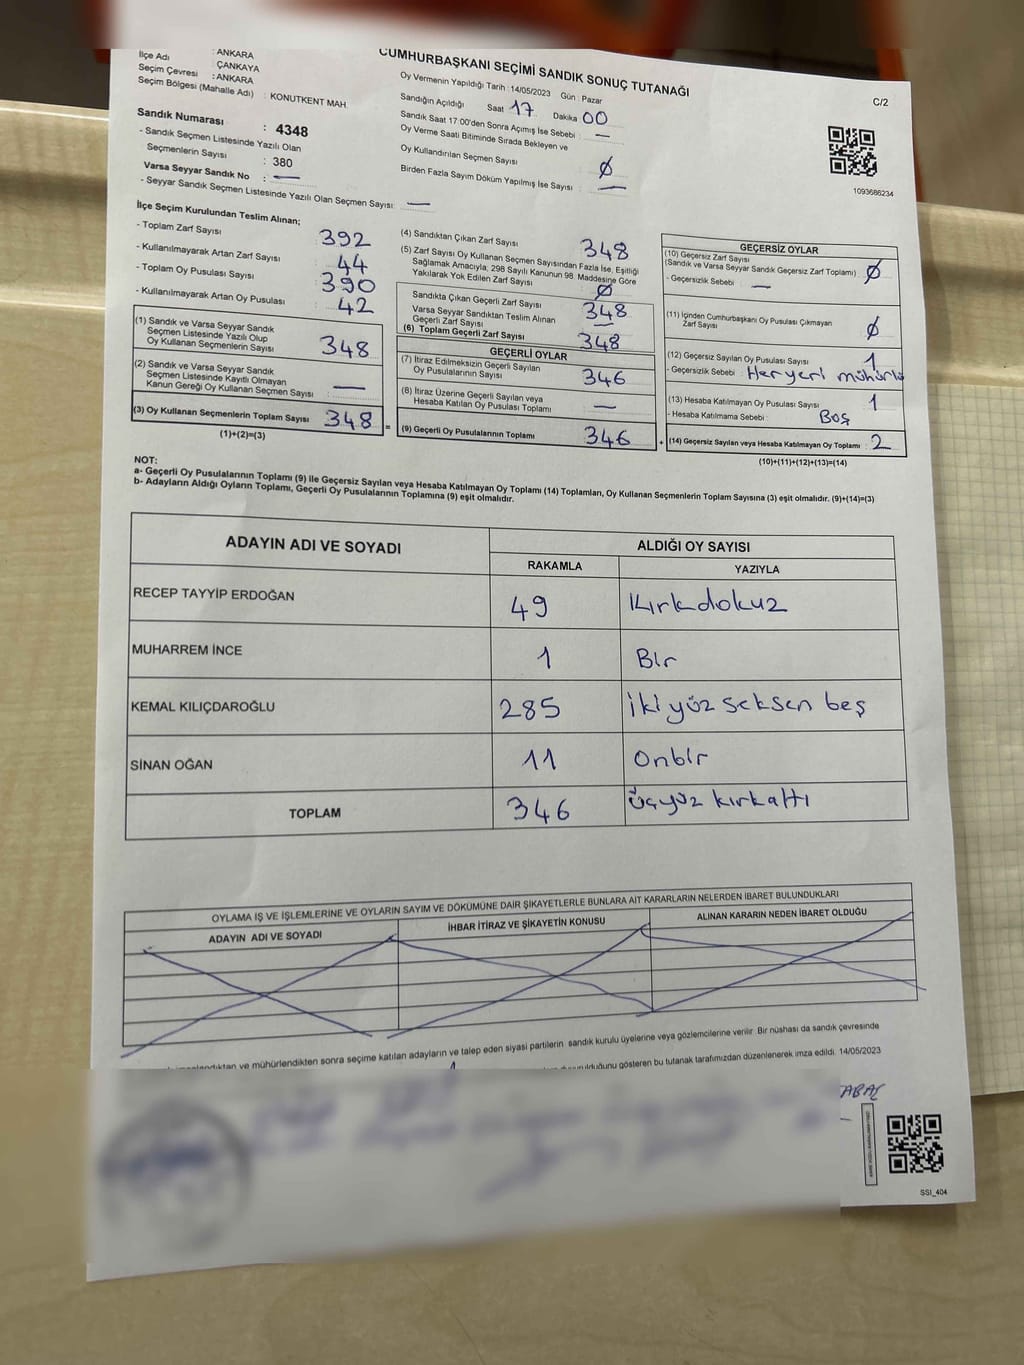 CUMHURBAŞKANI SEÇİMİ SANDIK SONUÇ TUTANAĞI
C/2
: ANKARA
İlçe Adı : ÇANKAYA
Seçim Çevresi : ANKARA
Seçim Bölgesi (Mahalle Adı) : KONUTKENT MAH.
Sandık Numarası : 4348
- Sandık Seçmen Listesinde Yazılı Olan
Seçmenlerin Sayısı : 380
Varsa Seyyar Sandık No : —
- Seyyar Sandık Seçmen Listesinde Yazılı Olan Seçmen Sayısı: —
Oy Vermenin Yapıldığı Tarih : 14/05/2023 Gün : Pazar
Sandığın Açıldığı Saat 17 Dakika 00
Sandık Saat 17:00'den Sonra Açımış İse Sebebi : —
Oy Verme Saati Bitiminde Sırada Bekleyen ve
Oy Kullandırılan Seçmen Sayısı : Ø
Birden Fazla Sayım Döküm Yapılmış İse Sayısı : —
1093686234
İlçe Seçim Kurulundan Teslim Alınan;
- Toplam Zarf Sayısı : 392
- Kullanılmayarak Artan Zarf Sayısı : 44
- Toplam Oy Pusulası Sayısı : 390
- Kullanılmayarak Artan Oy Pusulası : 42
(1) Sandık ve Varsa Seyyar Sandık
Seçmen Listesinde Yazılı Olup
Oy Kullanan Seçmenlerin Sayısı : 348
(2) Sandık ve Varsa Seyyar Sandık
Seçmen Listesinde Kayıtlı Olmayan
Kanun Gereği Oy Kullanan Seçmen Sayısı : —
(3) Oy Kullanan Seçmenlerin Toplam Sayısı : 348 =
(1)+(2)=(3)
(4) Sandıktan Çıkan Zarf Sayısı : 348
(5) Zarf Sayısı Oy Kullanan Seçmen Sayısından Fazla İse, Eşitliği
Sağlamak Amacıyla, 298 Sayılı Kanunun 98. Maddesine Göre
Yakılarak Yok Edilen Zarf Sayısı : Ø
Sandıkta Çıkan Geçerli Zarf Sayısı : 348
Varsa Seyyar Sandıktan Teslim Alınan
Geçerli Zarf Sayısı : —
(6) Toplam Geçerli Zarf Sayısı : 348
GEÇERLİ OYLAR
(7) İtiraz Edilmeksizin Geçerli Sayılan
Oy Pusulalarının Sayısı : 346
(8) İtiraz Üzerine Geçerli Sayılan veya
Hesaba Katılan Oy Pusulası Toplamı : —
(9) Geçerli Oy Pusulalarının Toplamı : 346 +
GEÇERSİZ OYLAR
(10) Geçersiz Zarf Sayısı
(Sandık ve Varsa Seyyar Sandık Geçersiz Zarf Toplamı) : Ø
- Geçersizlik Sebebi : —
(11) İçinden Cumhurbaşkanı Oy Pusulası Çıkmayan
Zarf Sayısı : Ø
(12) Geçersiz Sayılan Oy Pusulası Sayısı : 1
- Geçersizlik Sebebi : Heryeri mühürlü
(13) Hesaba Katılmayan Oy Pusulası Sayısı : 1
- Hesaba Katılmama Sebebi : Boş
(14) Geçersiz Sayılan veya Hesaba Katılmayan Oy Toplamı : 2
(10)+(11)+(12)+(13)=(14)
NOT:
a- Geçerli Oy Pusulalarının Toplamı (9) ile Geçersiz Sayılan veya Hesaba Katılmayan Oy Toplamı (14) Toplamları, Oy Kullanan Seçmenlerin Toplam Sayısına (3) eşit olmalıdır. (9)+(14)=(3)
b- Adayların Aldığı Oyların Toplamı, Geçerli Oy Pusulalarının Toplamına (9) eşit olmalıdır.
ADAYIN ADI VE SOYADI
ALDIĞI OY SAYISI
RAKAMLA YAZIYLA
RECEP TAYYİP ERDOĞAN 49 Kırkdokuz
MUHARREM İNCE 1 Bir
KEMAL KILIÇDAROĞLU 285 iki yüz seksen beş
SİNAN OĞAN 11 Onbir
TOPLAM 346 üçyüz kırkaltı
OYLAMA İŞ VE İŞLEMLERİNE VE OYLARIN SAYIM VE DÖKÜMÜNE DAİR ŞİKAYETLERLE BUNLARA AİT KARARLARIN NELERDEN İBARET BULUNDUKLARI
ADAYIN ADI VE SOYADI İHBAR İTİRAZ VE ŞİKAYETİN KONUSU ALINAN KARARIN NEDEN İBARET OLDUĞU
ve mühürlendikten sonra seçime katılan adayların ve talep eden siyasi partilerin sandık kurulu üyelerine veya gözlemcilerine verilir. Bir nüshası da sandık çevresinde
gösteren bu tutanak tarafımızdan düzenlenerek imza edildi. 14/05/2023
SSI_404